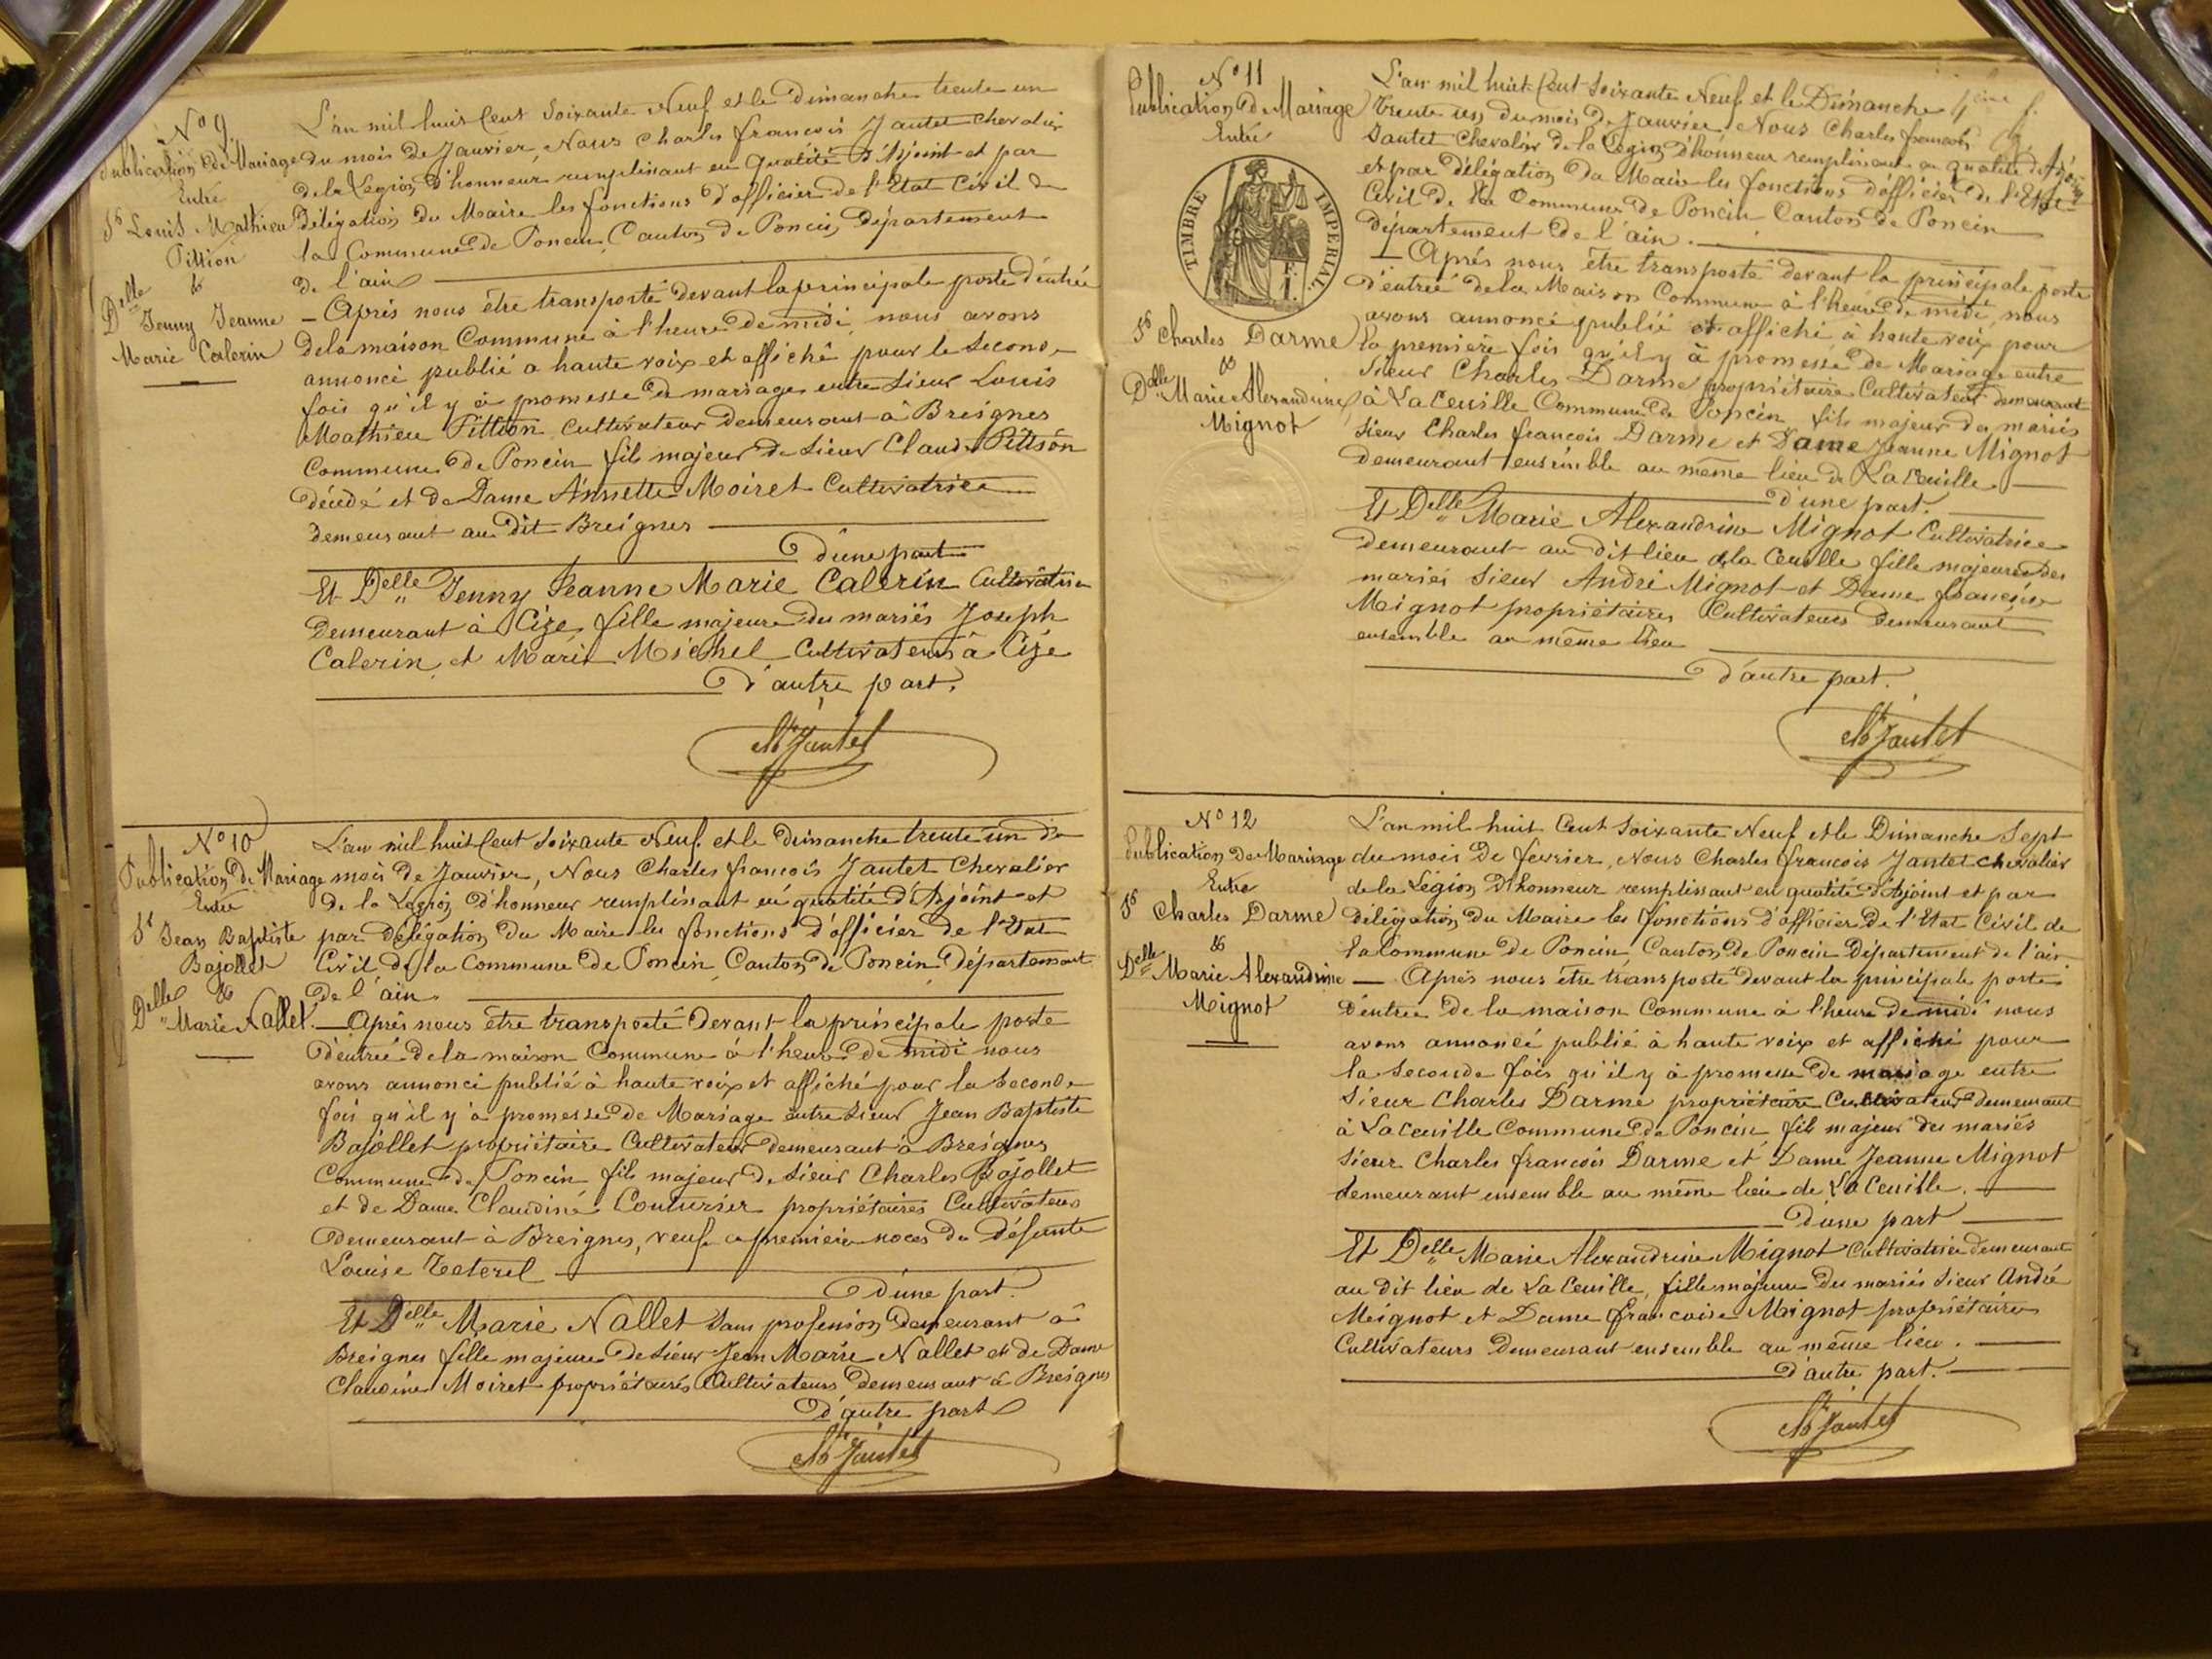 N° 9
Publication de Mariage
Entre
Sr Louis Mathieu
Pittion
&
Delle Jenny Jeanne
Marie Calerin
L'an mil huit Cent Soixante Neuf et le Dimanche trente un
du mois de Janvier, Nous Charles francois Jantet Chevalier
de la Légion d'honneur remplissant en qualité d'Adjoint et par
Délégation du Maire les fonctions d'officier de l'Etat Civil de
la Commune de Poncin, Canton de Poncin, Département
de l'ain
— Après nous être transporté devant la principale porte d'entrée
de la maison Commune à l'heure de midi, nous avons
annoncé publié a haute voix et affiché pour la Seconde
fois qu'il y à promesse de mariage entre Sieur Louis
Mathieu Pittion Cultivateur demeurant à Breignes
Commune de Poncin fils majeur de Sieur Claude Pittion
décédé et de Dame Annette Moiret Cultivatrice
demeurant au dit Breignes
D'une part
Et Delle Jenny Jeanne Marie Calerin Cultivatrice
Demeurant à Cize, fille majeure des mariés Joseph
Calerin, et Marie Michel Cultivateurs à Cize
D'autre part.
Ch Jantet
N° 10
Publication de Mariage
Entre
Sr Jean Baptiste
Bajollet
&
Delle Marie Nallet.
L'an mil huit Cent Soixante Neuf et le dimanche trente un du
mois de Janvier, Nous Charles francois Jantet Chevalier
de la Légion d'honneur remplissant en qualité d'Adjoint et
par Délégation du Maire les fonctions d'officier de l'Etat
Civil de la Commune de Poncin Canton de Poncin Département
De l'ain.
— Après nous être transporté Devant la principale porte
d'entrée de la maison Commune à l'heure de midi nous
avons annoncé publié à haute voix et affiché pour la Seconde
fois qu'il y à promesse de Mariage entre Sieur Jean Baptiste
Bajollet propriétaire Cultivateur demeurant à Breignes
Commune de Poncin fils majeur de Sieur Charles Bajollet
et de Dame Claudine Couturier propriétaires Cultivateurs
Demeurant à Breignes, veuf en premières noces de Défunte
Louise
D'une part.
Et Delle Marie Nallet Sans profession Demeurant à
Breignes fille majeure de Sieur Jean Marie Nallet et de Dame
Claudine Moiret propriétaires Cultivateurs Demeurant à Breignes
D'autre part
Ch Jantet
N° 11
Publication de Mariage
Entre
TIMBRE IMPERIAL.
Sr Charles Darme
&
Delle Marie Alexandrine
Mignot
4ème f.
L'an mil huit Cent Soixante Neuf et le Dimanche
trente un du mois de Janvier. Nous Charles francois
Jantet Chevalier de la Légion d'honneur remplissant en qualité d'Adjoint
et par délégation du Maire les fonctions d'officier de l'Etat
Civil de la Commune de Poncin Canton de Poncin
Département de l'ain.
— Après nous être transporté devant la principale porte
d'entrée de la Maison Commune à l'heure de midi, nous
avons annoncé publié et affiché, à haute voix pour
la première fois qu'il y à promesse de Mariage entre
Sieur Charles Darme propriétaire Cultivateur demeurant
à La Ceuille Commune de Poncin fils majeur des mariés
Sieur Charles francois Darme et Dame Jeanne Mignot
demeurant ensemble au même lieu de La Ceuille
d'une part.
Et Delle Marie Alexandrine Mignot Cultivatrice
demeurant au dit lieu de la Ceuille fille majeure des
mariés Sieur André Mignot et Dame francoise
Mignot propriétaires Cultivateurs Demeurant
ensemble au même lieu
D'autre part.
Ch Jantet
N° 12
Publication De Mariage
Entre
Sr Charles Darme
&
Delle Marie Alexandrine
Mignot
L'an mil huit Cent Soixante Neuf et le Dimanche Sept
du mois de fevrier, Nous Charles francois Jantet chevalier
de la Légion d'honneur remplissant en qualité d'Adjoint et par
délégation du Maire les fonctions d'officier de l'Etat Civil de
la Commune de Poncin, Canton de Poncin Département de l'ain
— Après nous être transporté devant la principale porte
d'entrée de la maison Commune à l'heure de midi nous
avons annoncé publié à haute voix et affiché pour
la Seconde fois qu'il y à promesse de mariage entre
Sieur Charles Darme propriétaire Cultivateur demeurant
à La Ceuille Commune de Poncin, fils majeur des mariés
Sieur Charles francois Darme et Dame Jeanne Mignot
demeurant ensemble au même lieu de La Ceuille.
D'une part
Et Delle Marie Alexandrine Mignot Cultivatrice demeurant
au dit lieu de La Ceuille, fille majeure des mariés Sieur André
Mignot et Dame francoise Mignot propriétaires
Cultivateurs Demeurant ensemble au même lieu.
D'autre part.
Ch Jantet